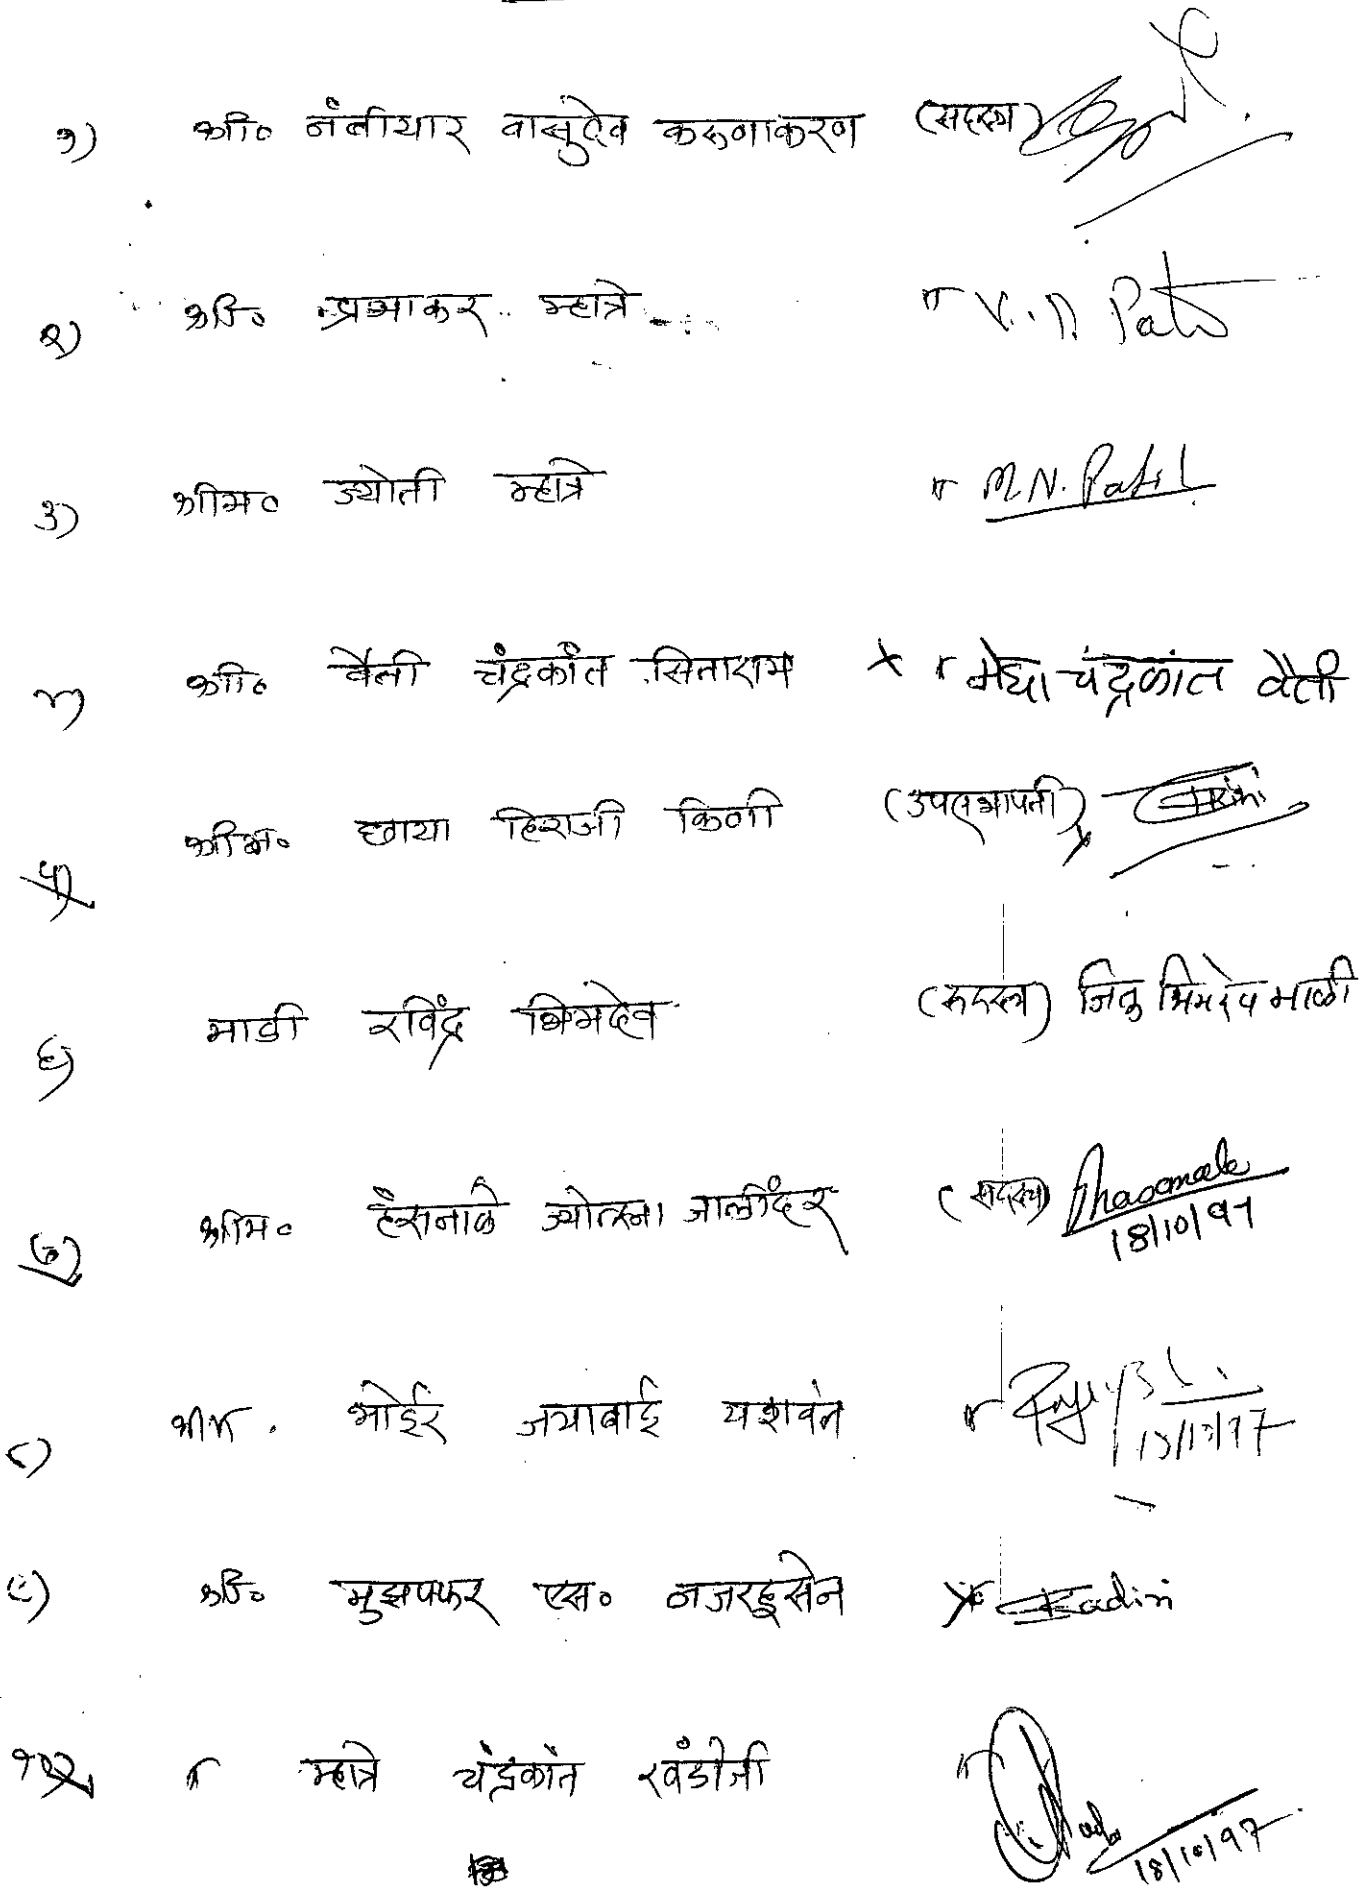 १) श्री० नंबीयार वासुदेव करुणाकरण (सदस्य)
२) श्री० प्रभाकर म्हात्रे " V. N. Patil
३) श्रीम० ज्योती म्हात्रे " M.N. Patil
४) श्री० वैती चंद्रकांत सिताराम x " मेघा चंद्रकांत वैती
५) श्रीम० छाया हिराजी किणी (उपसभापती) x
६) माळी रविंद्र भिमदेव (सदस्य) जितु भिमदेव माळी
७) श्रीम० हंसनाळे ज्योत्स्ना जालींदर (सदस्य) 18/10/97
८) श्रीम. भोईर जयाबाई यशवंत "
९) श्री० मुझफ्फर एस० नजरहुसेन x Kadiri
१०) " म्हात्रे चंद्रकांत खंडोजी " 18/10/97